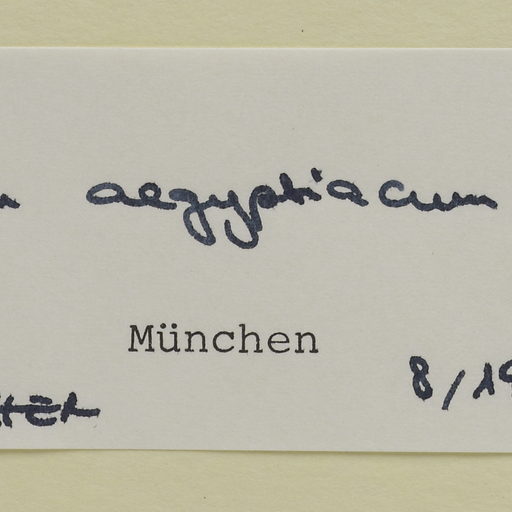 aegyptiacum
München
8/19